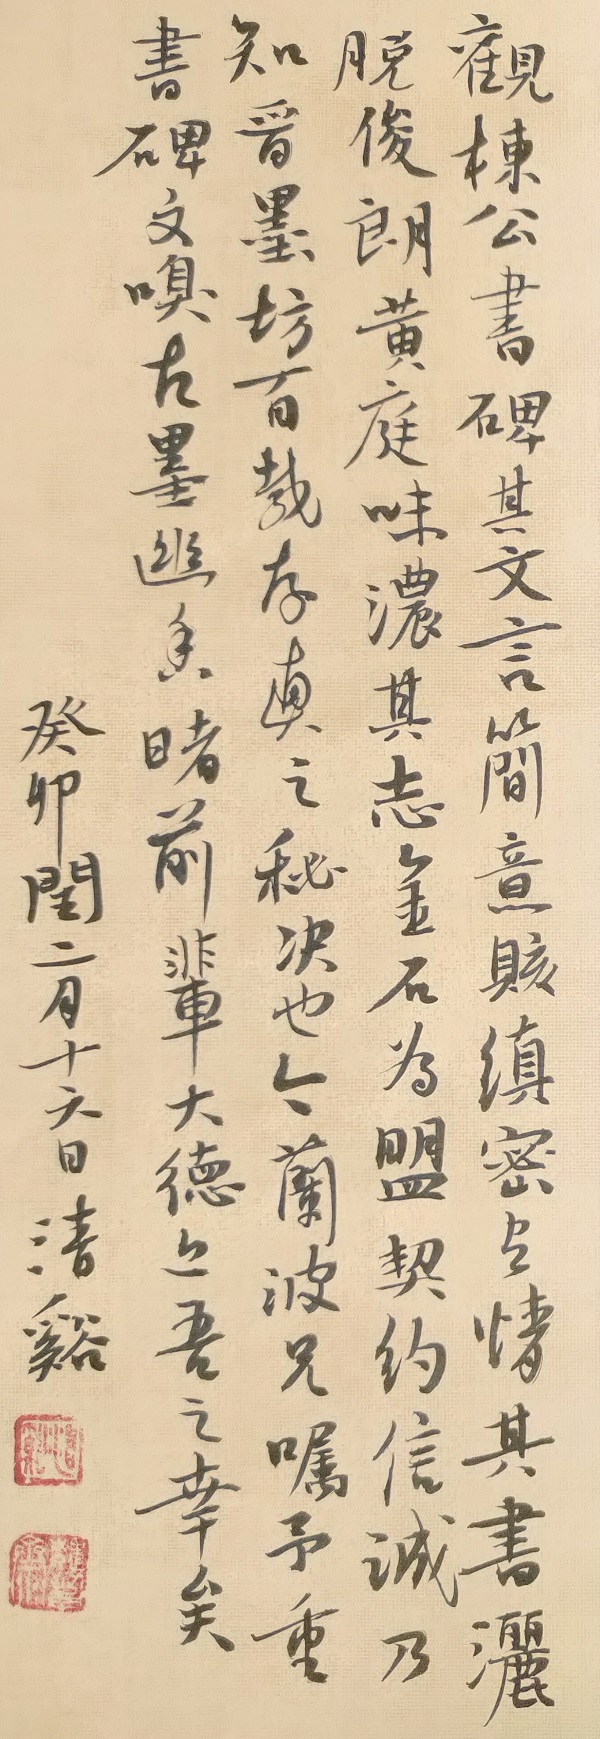 觀棟公書碑其文言簡意賅縝密有情其書灑
脫俊朗黃庭味濃其志金石為盟契約信誠乃
知晉墨坊百載存真之秘決也今蘭波兄囑予重
書碑文嗅古墨幽香睹前輩大德亦吾之幸矣
癸卯閏二月十六日清谿